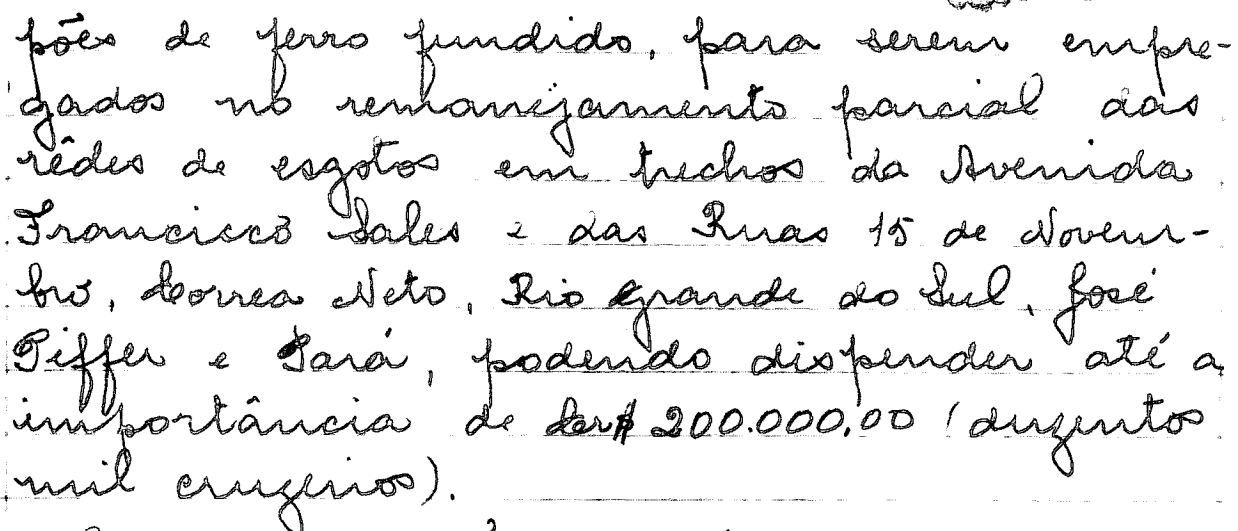 pões de ferro fundido, para serem empre-
gados no remanejamento parcial das
rêdes de esgotos em trechos da Avenida
Francisco Sales e das Ruas 15 de Novem-
bro, Correa Neto, Rio Grande do Sul, José
Piffer e Pará, podendo dispender até a
importância de Cr$ 200.000,00 (duzentos
mil cruzeiros).